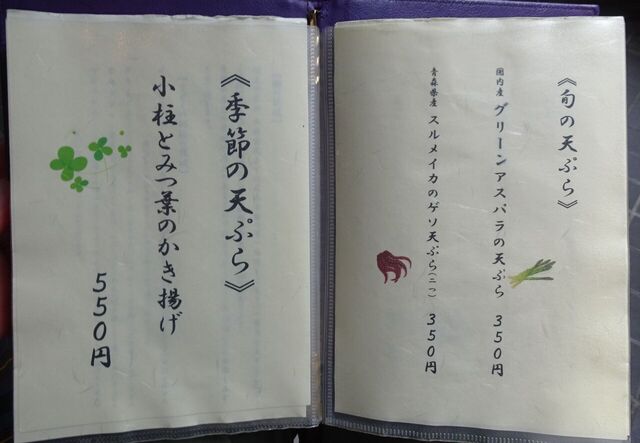 《旬の天ぷら》
国内産 グリーンアスパラの天ぷら 350円
青森県産 スルメイカのゲソ天ぷら(ミニ) 350円
《季節の天ぷら》
小柱とみつ葉のかき揚げ
550円